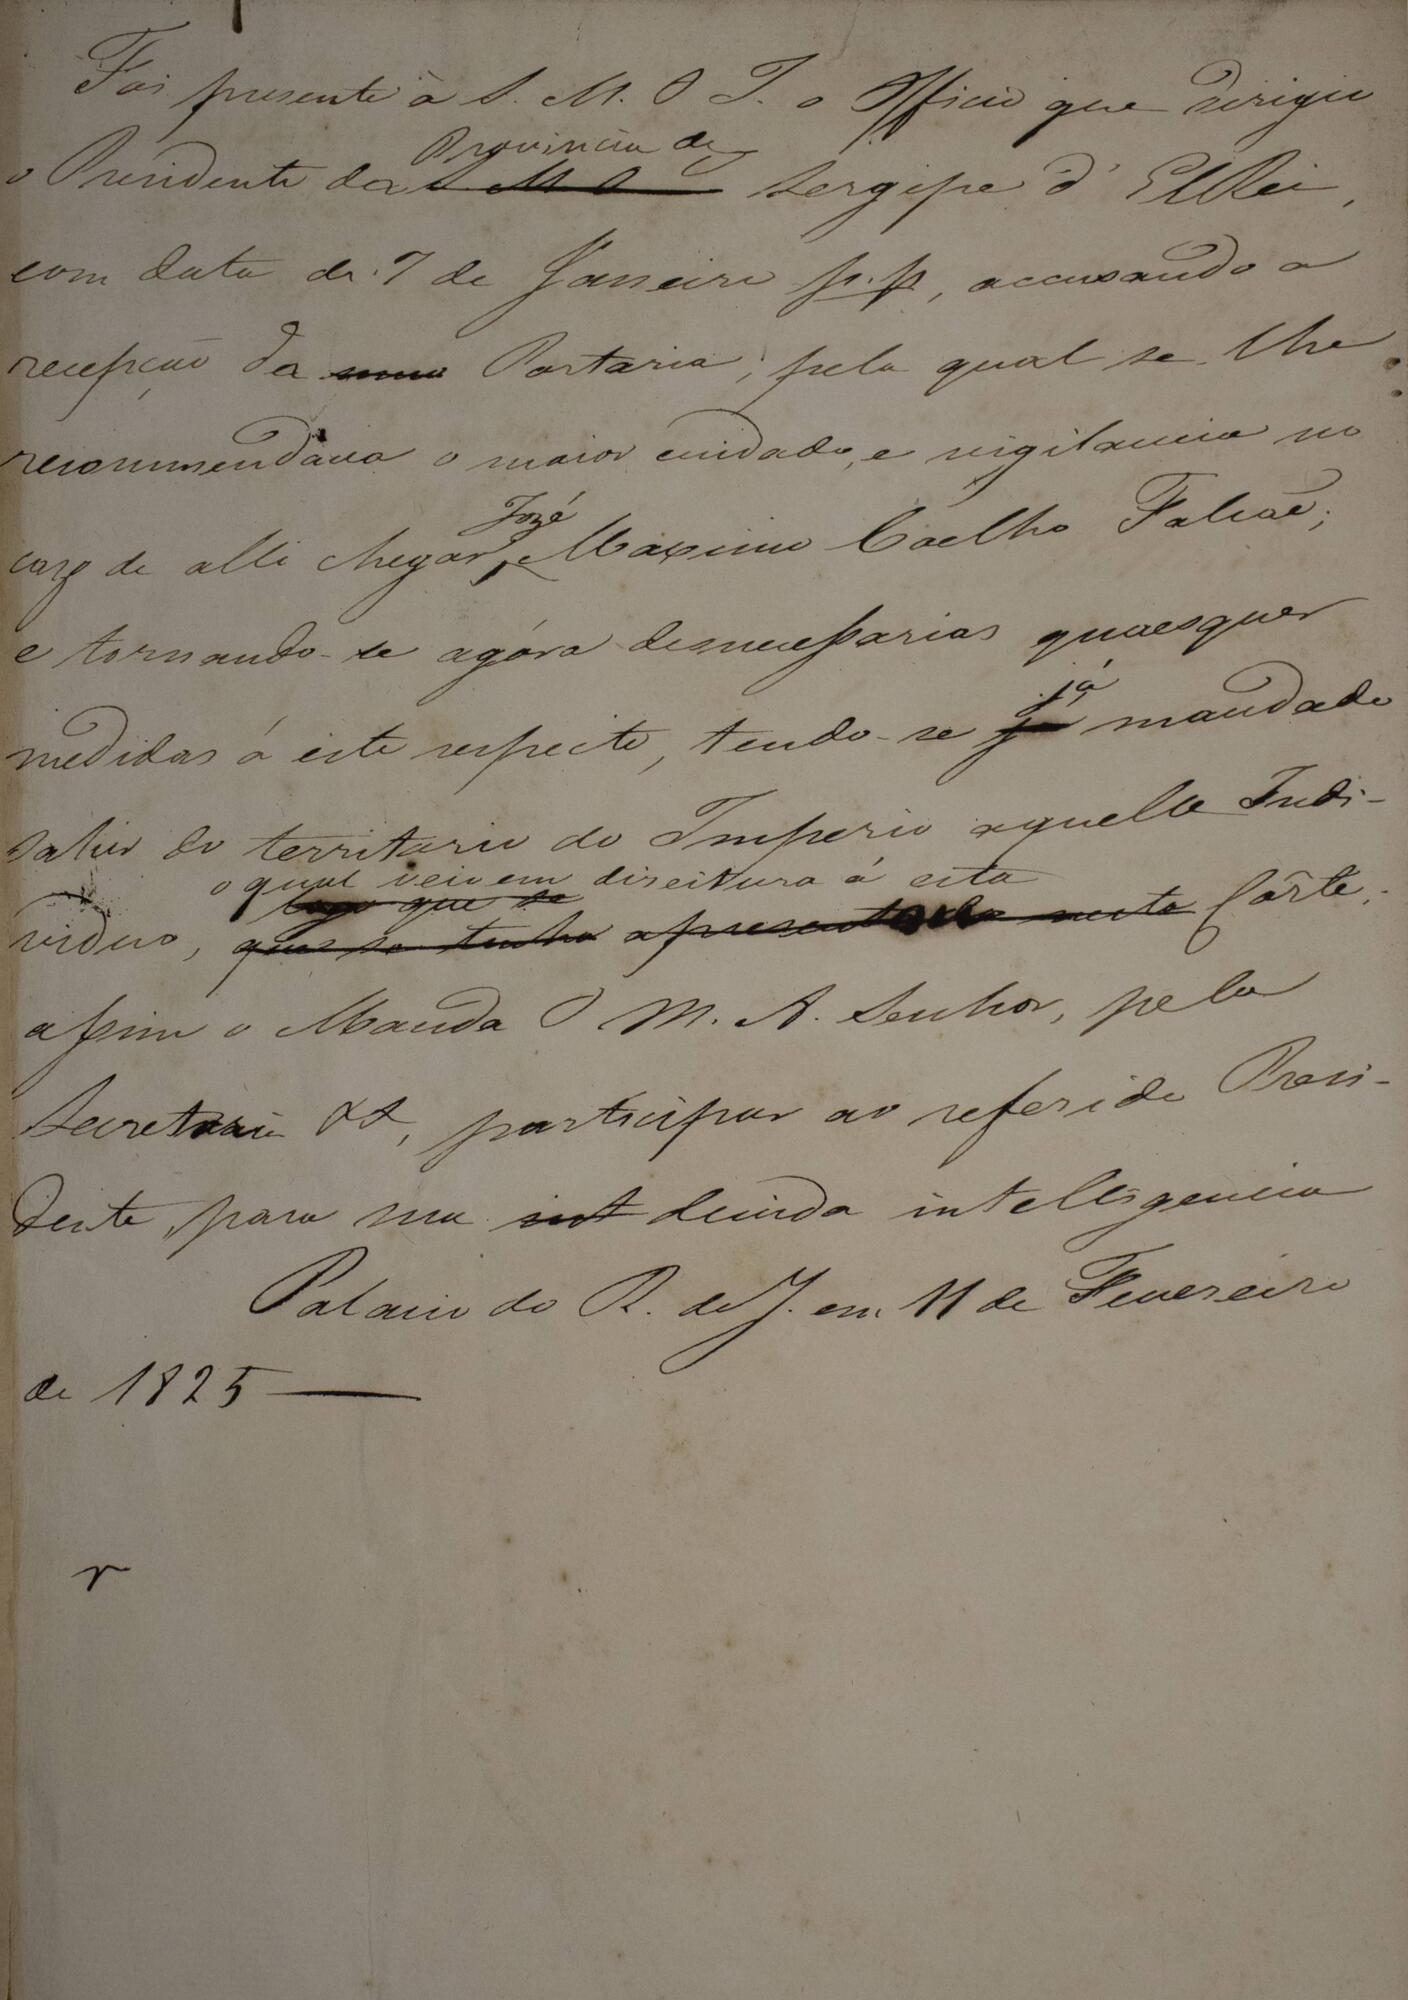 Foi presente à S. M. O I. o Officio que dirigiu
Provincia de
o Presidente da S M O Sergipe d' ElRei,
com data de 7 de Janeiro p.p, accusando a
recepção da sua Portaria, pela qual se lhe
recommendava o maior cuidado, e vigilancia no
Jozé
cazo de alli chegar, Maximo Coelho Falcão;
e tornando-se agóra desnecessarias quaesquer
já
medidas á este respeito, tendo-se mandado
sahir do territorio do Imperio aquelle Indi-
o qual veio em direitura á esta
logo que se
viduo, que se tenha apresentado nesta Côrte;
assim o Manda O M. A. Senhor, pela
Secretaria &&, participar ao referido Presi-
dente, para sua int devida intelligencia
Palacio do R. de J. em 11 de Fevereiro
de 1825